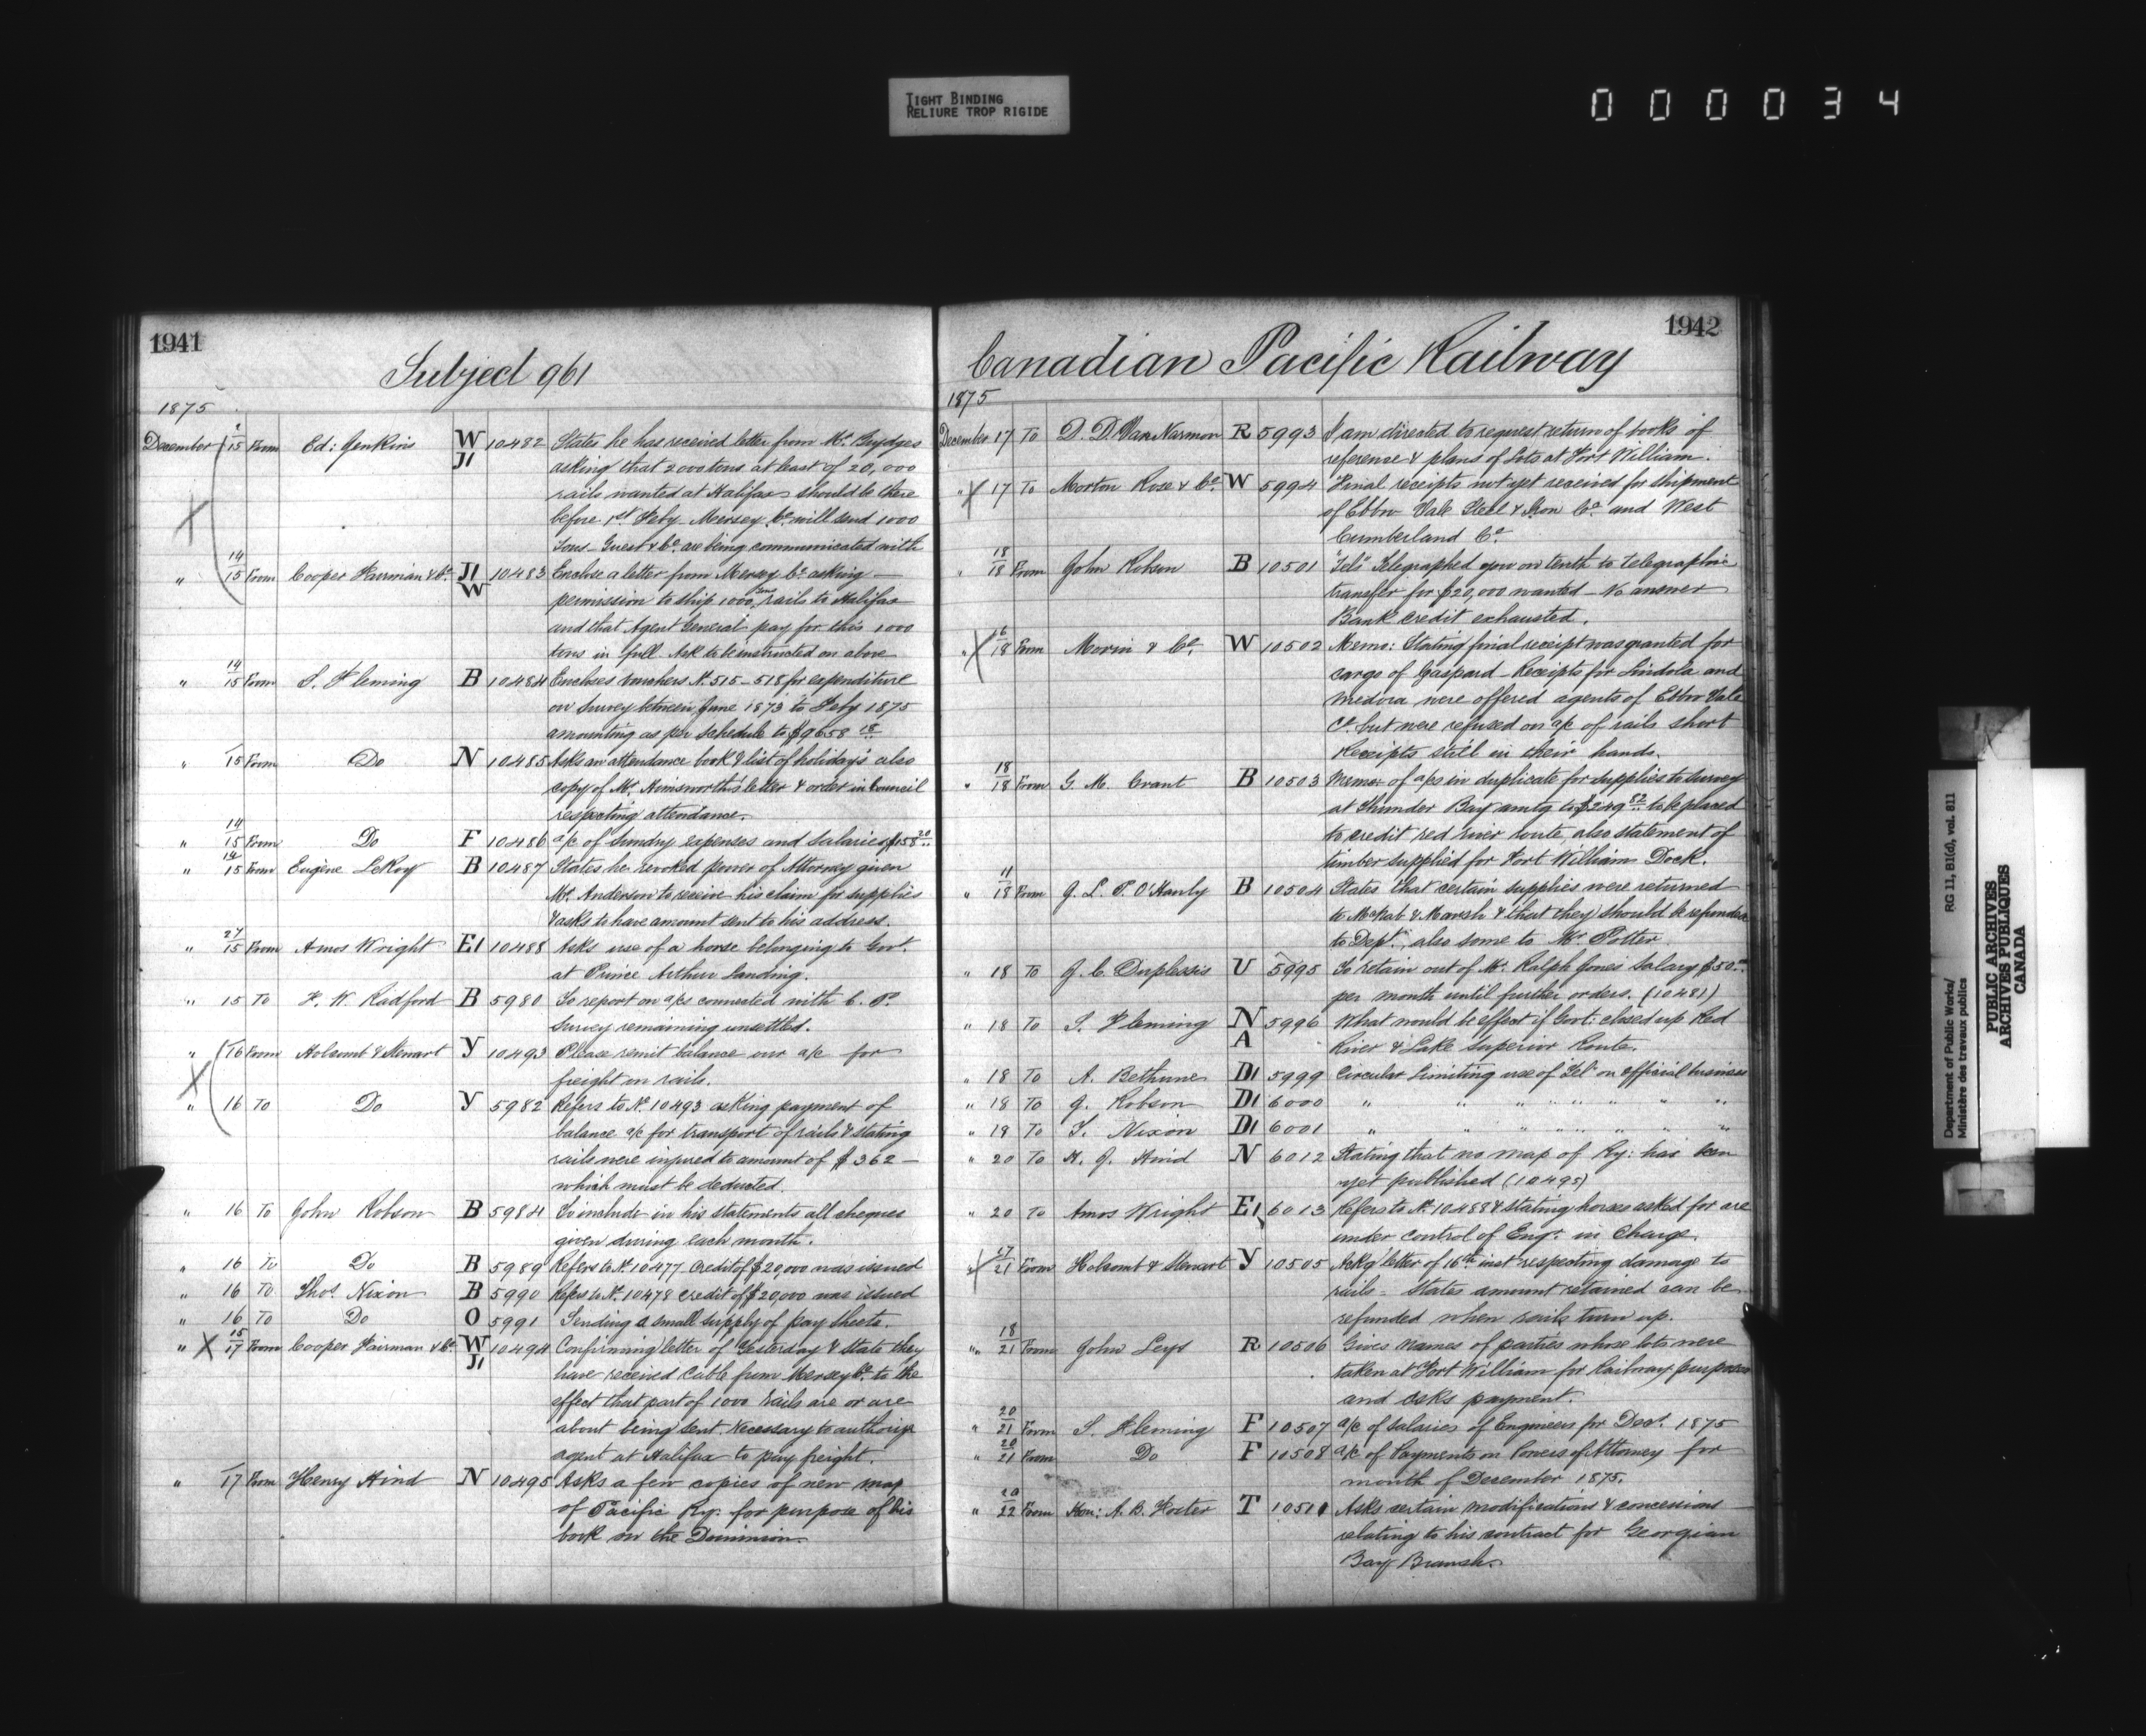 TIGHT BINDING
RELIURE TROP RIGIDE
000034
1941
Subject 961
1875
December 15 From Ed: Jenkins W J1 10482 States he has received letter from Mr. Brydges
asking that 2000 tons at least of 20,000
rails wanted at Halifax should be there
before 1st Feby. Mersey Co. will send 1000
tons. Guest & Co. are being communicated with
" 14/15 From Cooper Fairman & Co. J1 W 10483 Enclose a letter from Mersey Co. asking
permission to ship 1000 tons rails to Halifax
and that Agent General pay for this 1000
tons in full. Ask to be instructed on above
" 14/15 From S. Fleming B 10484 Encloses vouchers No. 515-518 for expenditure
on Survey between June 1873 to Feby 1875
amounting as per schedule to $9658 18
" 15 From Do N 10485 Asks an attendance book & list of holidays also
copy of Mr. Himsworth's letter & order in Council
respecting attendance.
" 14/15 From Do F 10486 a/c of Sundry expenses and Salaries $158 20
" 14/15 From Eugène LeRoy B 10487 States he revoked power of Attorney given
Mr. Anderson to receive his claim for supplies
& asks to have amount sent to his address.
" 27/15 From Amos Wright E1 10488 Asks use of a horse belonging to Govt.
at Prince Arthur Landing.
" 15 To F. W. Radford B 5980 To report on a/cs connected with C. P.
Survey remaining unsettled.
" 16 From Holcomb & Stewart Y 10493 Please remit balance our a/c for
freight on rails.
" 16 To Do Y 5982 Refers to No. 10493 asking payment of
balance a/c for transport of rails & stating
rails were injured to amount of $362 —
which must be deducted.
" 16 To John Robson B 5984 To include in his statements all cheques
given during each month.
" 16 To Do B 5989 Refers to No. 10477 Credit of $20,000 was issued
" 16 To Thos. Nixon B 5990 Refers to No. 10478 Credit of $20,000 was issued
" 16 To Do O 5991 Sending a small supply of pay sheets.
" X 15/17 From Cooper Fairman & Co. W J1 10494 Confirming letter of Yesterday & State they
have received Cable from Mersey Co. to the
effect that part of 1000 rails are or are
about being sent. Necessary to authorize
agent at Halifax to pay freight.
" 17 From Henry Hind N 10495 Asks a few copies of new map
of Pacific Ry. for purpose of his
book on the Dominion.
1942
Canadian Pacific Railway
1875
December 17 To D. D. Van Norman R 5993 I am directed to request return of books of
reference & plans of Lots at Fort William.
" X 17 To Morton Rose & Co. W 5994 Final receipts not yet received for shipment
of Ebbw Vale Steel & Iron Co. and West
Cumberland Co.
" 18/18 From John Robson B 10501 "Tel" Telegraphed you on tenth to telegraphic
transfer for $20,000 wanted — No answer
Bank credit exhausted.
" X 16/18 From Morin & Co. W 10502 Memo: Stating final receipt was granted for
cargo of Gaspard — Receipts for Lindola and
Medora were offered agents of Ebbw Vale
Co. but were refused on a/c of rails short
Receipts still in their hands.
" 18/18 From G. M. Grant B 10503 Memo: of a/cs in duplicate for supplies to Survey
at Thunder Bay amtg to $249 82 to be placed
to credit red river route, also statement of
timber supplied for Fort William Dock.
" 11/18 From J. L. P. O'Hanly B 10504 States that certain supplies were returned
to McNab & Marsh & that they should be refunded
to Dept., also some to Mr. Potter
" 18 To J. C. Duplessis U 5995 To retain out of Mr. Ralph Jones Salary $50.00
per month until further orders. (10481)
" 18 To S. Fleming N A 5996 What would be effect if Govt: closed up Red
River & Lake Superior Route.
" 18 To A. Bethune D1 5999 Circular limiting use of Tel: on official business
" 18 To J. Robson D1 6000 " " " " " " " "
" 19 To T. Nixon D1 6001 " " " " " " " "
" 20 To H. J. Hind N 6012 Stating that no map of Ry: has been
yet published (10495)
" 20 To Amos Wright E1 6013 Refers to No. 10488 & stating horses asked for are
under control of Engr. in Charge.
" X 17/21 From Holcomb & Stewart Y 10505 Ackg letter of 16th inst respecting damage to
rails — States amount retained can be
refunded when rails turn up.
" 18/21 From John Leys R 10506 Gives names of parties whose lots were
taken at Fort William for Railway purposes
and asks payment.
" 20/21 From S. Fleming F 10507 a/c of Salaries of Engineers for Decr. 1875
" 20/21 From Do F 10508 a/c of Payments on Powers of Attorney for
month of December 1875.
" 20/22 From Hon: A. B. Foster T 10511 Asks certain modifications & concessions
relating to his contract for Georgian
Bay Branch.
Department of Public Works/ RG 11, B1(d), vol. 811
Ministère des travaux publics
PUBLIC ARCHIVES
ARCHIVES PUBLIQUES
CANADA